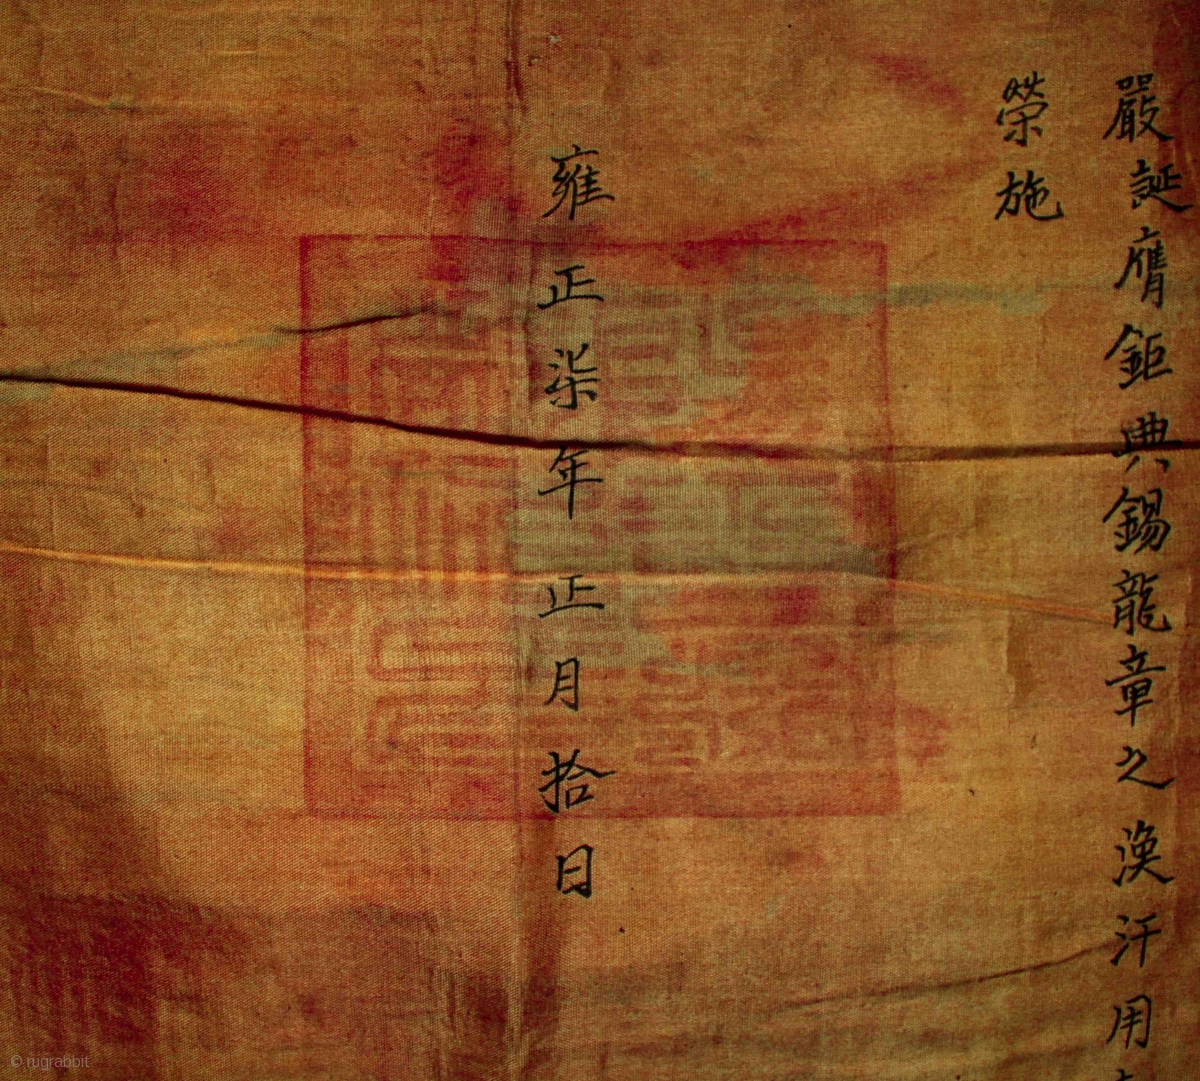 嚴誕膺鉅典錫龍章之渙汗用
榮施
雍正柒年正月拾日
© rugrabbit